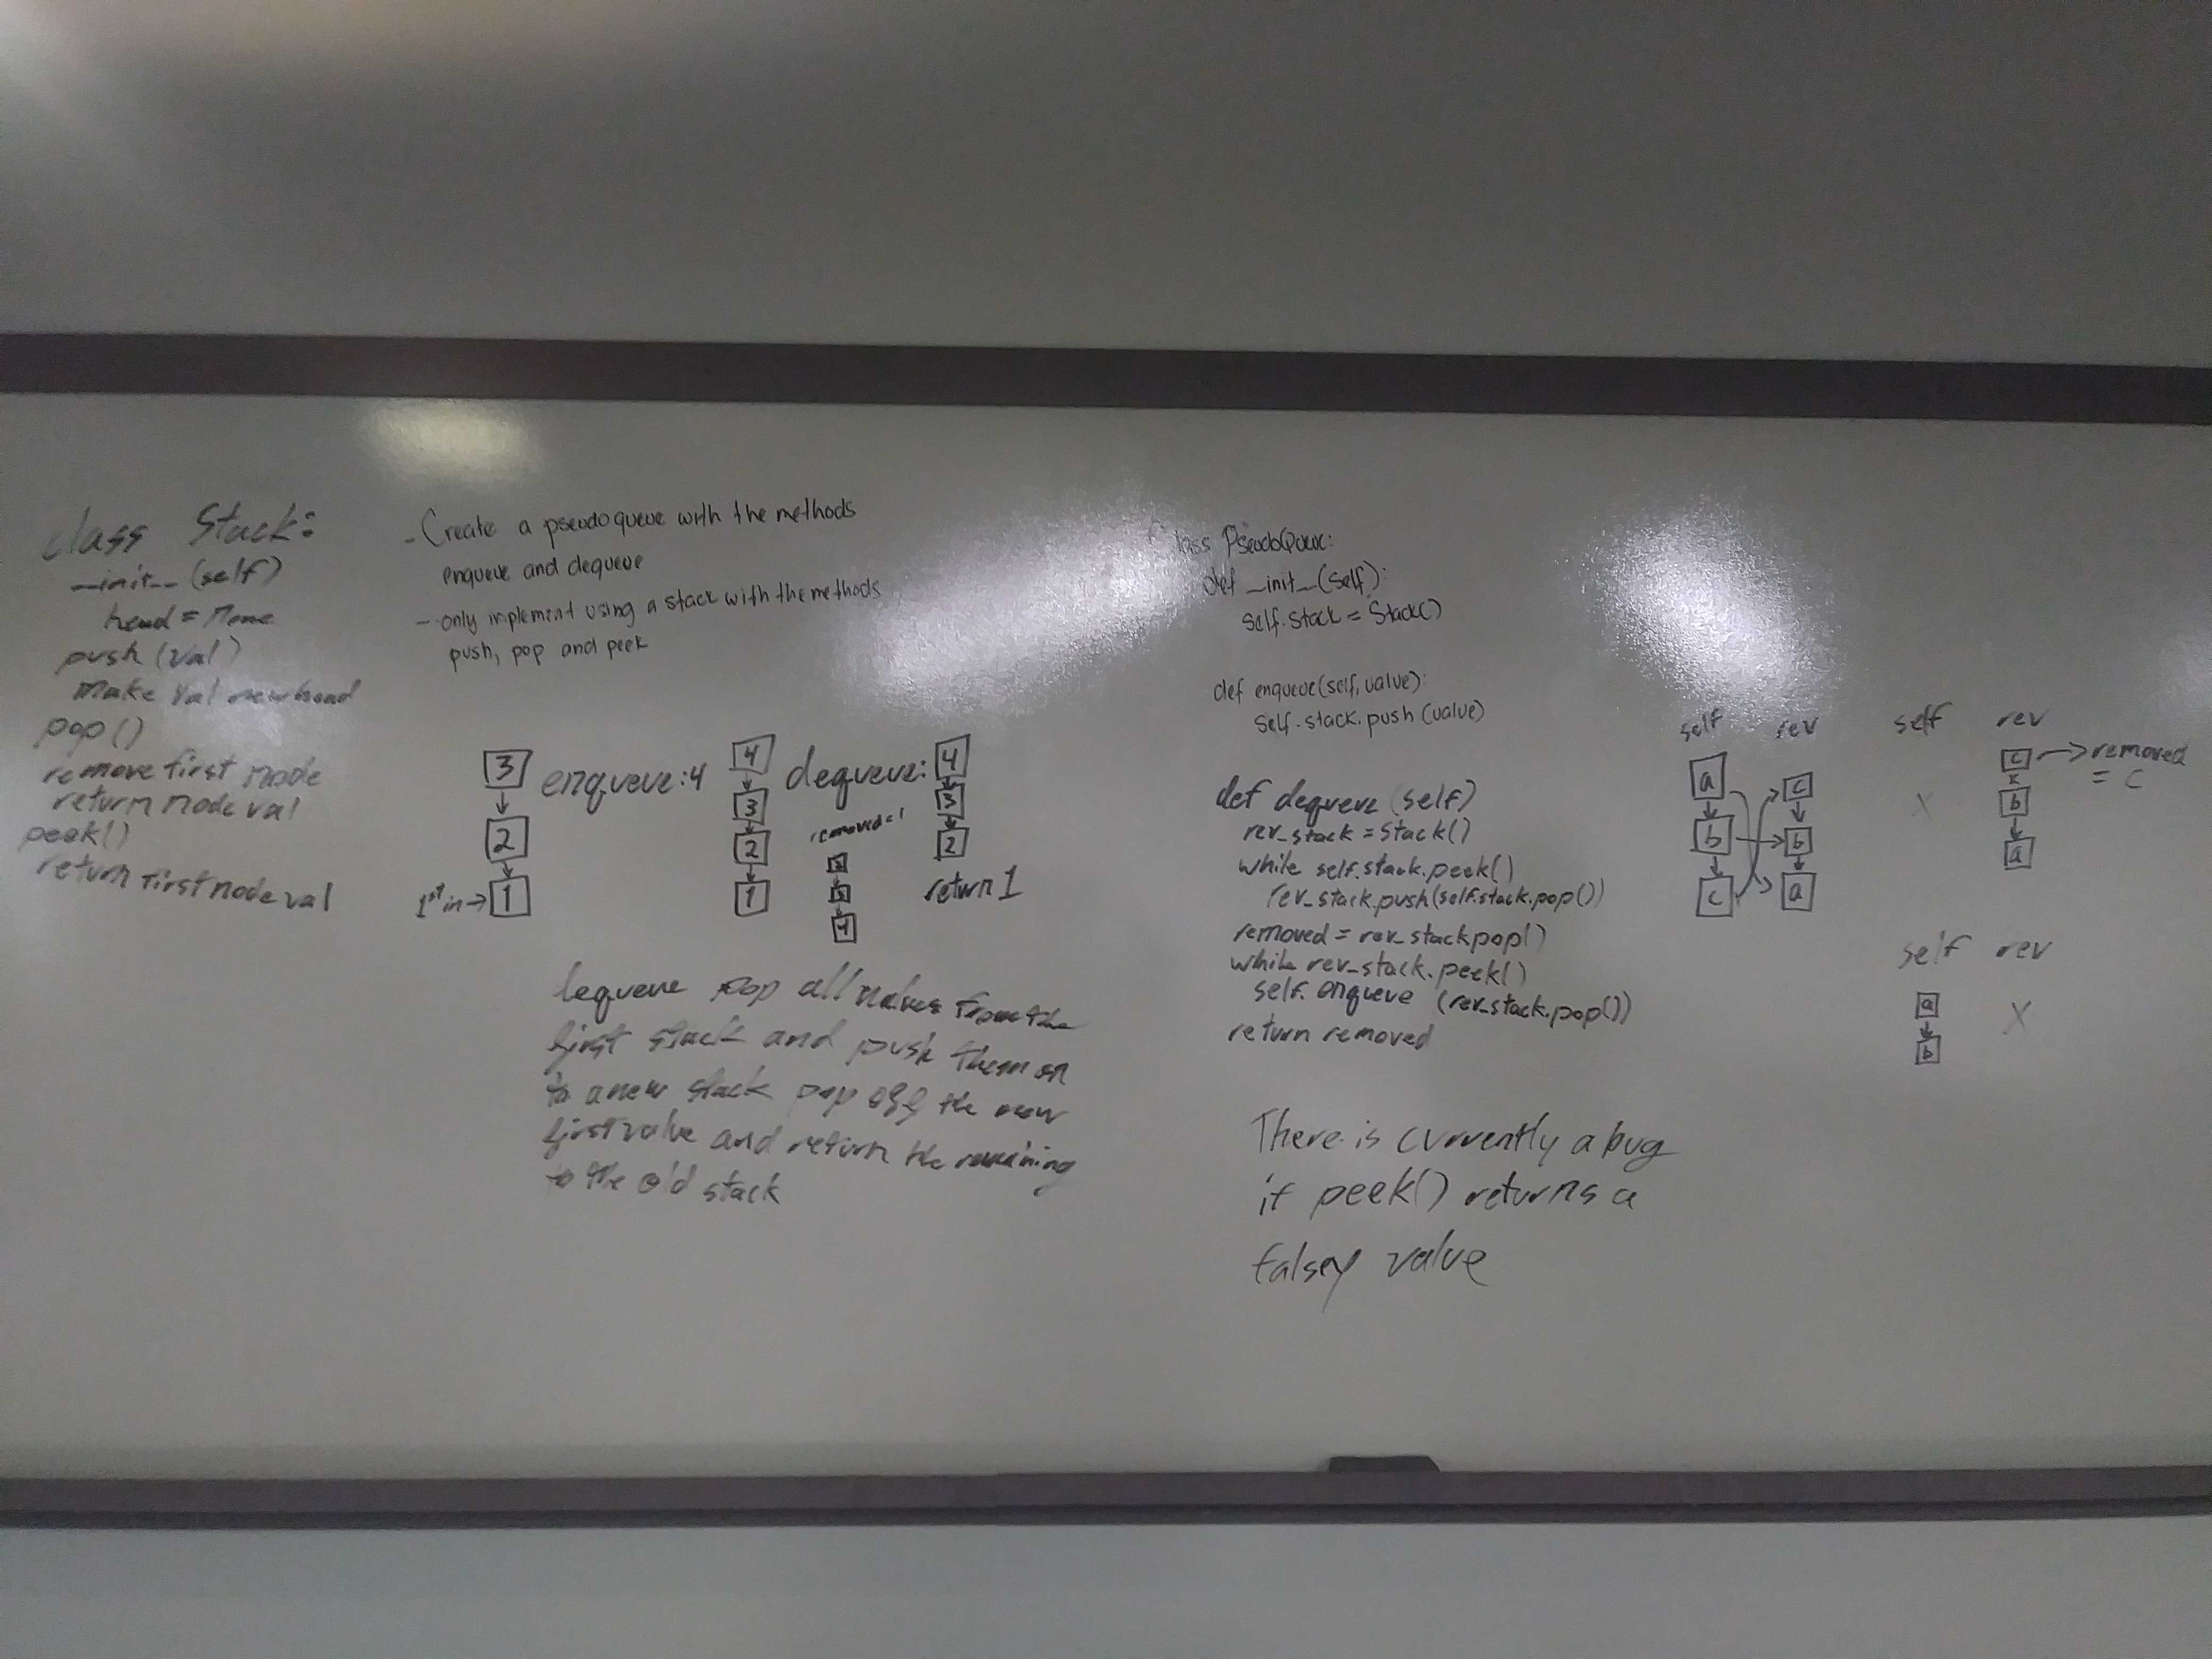 class Stack:
__init__(self)
head = None
push (val)
make val new head
pop()
remove first node
return node val
peek()
return first node val
- Create a pseudo queue with the methods
enqueue and dequeue
- only implement using a stack with the methods
push, pop and peek
3
2
1st in → 1
enqueue: 4
4
3
2
1
dequeue:
removed = 1
2
3
4
4
3
2
return 1
dequeue pop all values from the
first stack and push them on
to a new stack pop off the new
first value and return the remaining
to the old stack
class PseudoQueue:
def __init__(self):
self.stack = Stack()
def enqueue(self, value):
self.stack.push(value)
def dequeue (self)
rev_stack = Stack()
while self.stack.peek()
rev_stack.push(self.stack.pop())
removed = rev_stack pop()
while rev_stack.peek()
self.enqueue (rev_stack.pop())
return removed
There is currently a bug
if peek() returns a
falsey value
self rev
a c
b b
c a
self rev
X c → removed
= c
b
a
self rev
a X
b